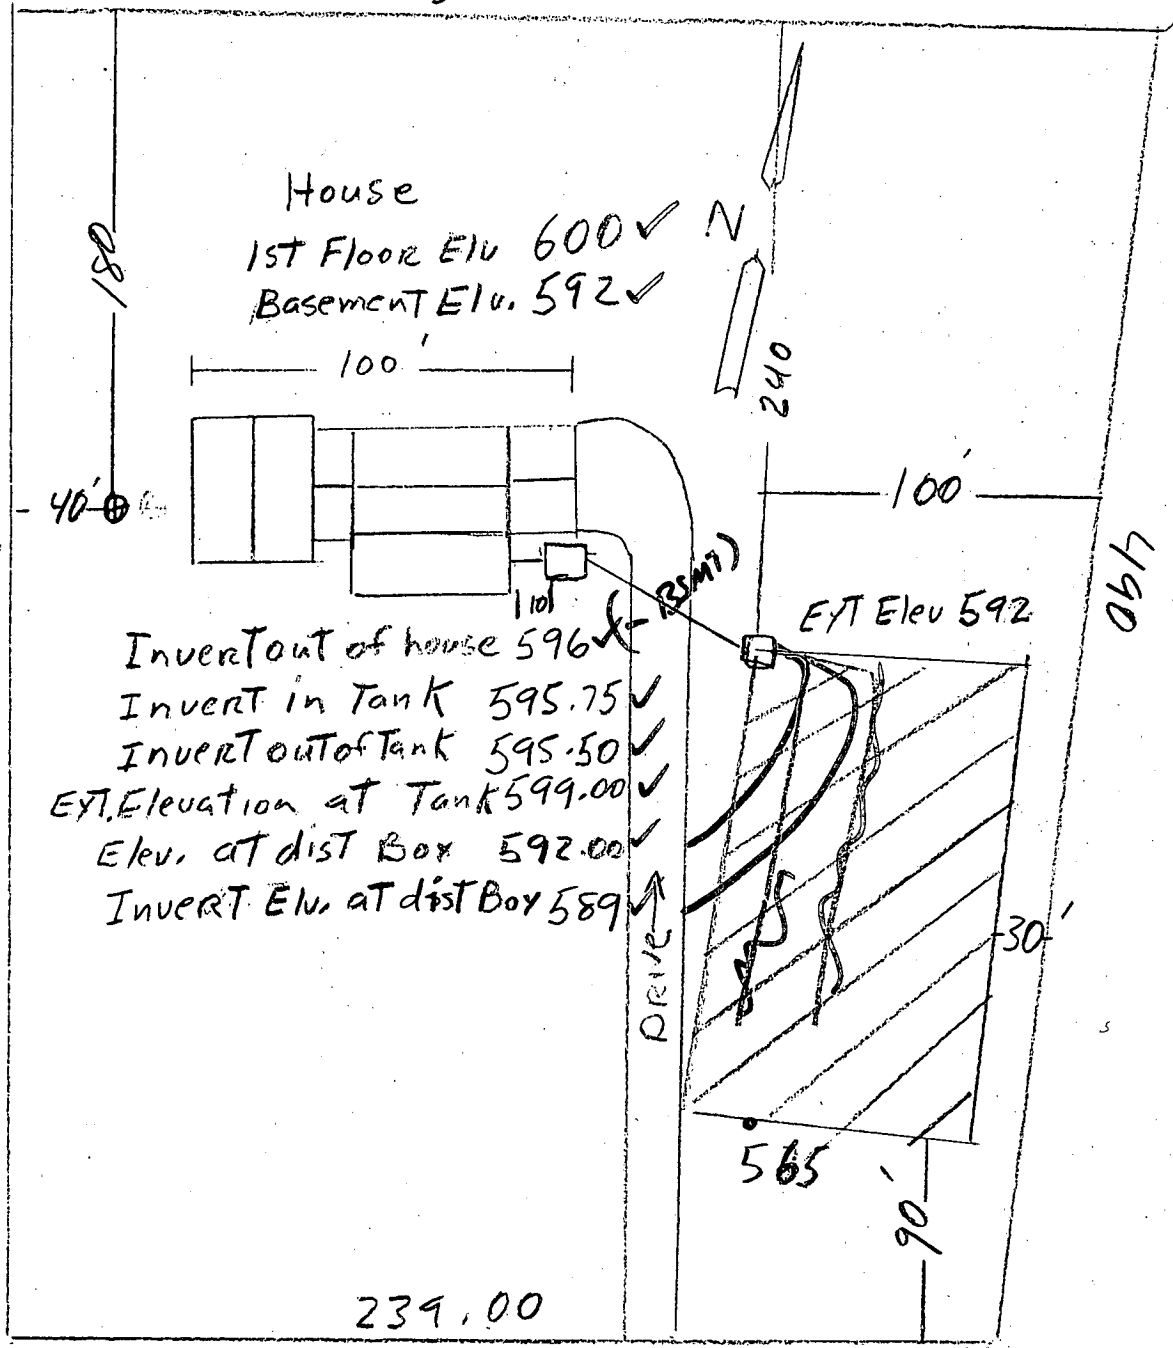 180
House
1ST Floor Elv 600 ✓
Basement Elv. 592 ✓
N
240
100'
40'
100'
490
10'
(- BSMT)
Ext Elev 592
Invert out of house 596 ✓
Invert in Tank 595.75 ✓
Invert out of Tank 595.50 ✓
EXT. Elevation at Tank 599.00 ✓
Elev. at dist Box 592.00 ✓
Invert Elv. at dist Box 589 ✓
DRIVE →
30'
565
90'
239.00